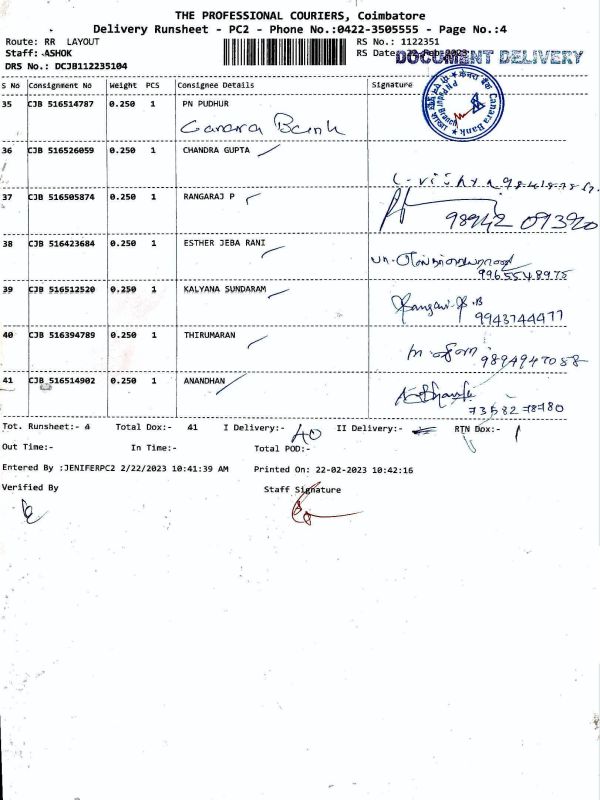 THE PROFESSIONAL COURIERS, Coimbatore
Delivery Runsheet - PC2 - Phone No.:0422-3505555 - Page No.:4
Route: RR LAYOUT RS No.: 1122351
Staff: ASHOK RS Date: 22-Feb-2023
DOCUMENT DELIVERY
DRS No.: DCJB112235104
S No Consignment No Weight PCS Consignee Details Signature
35 CJB 516514787 0.250 1 PN PUDHUR
Canara Bank
Canara Bank
36 CJB 516526059 0.250 1 CHANDRA GUPTA
37 CJB 516505874 0.250 1 RANGARAJ P
98942 09390
38 CJB 516423684 0.250 1 ESTHER JEBA RANI
9965548975
39 CJB 516512520 0.250 1 KALYANA SUNDARAM
9943744477
40 CJB 516394789 0.250 1 THIRUMARAN
9894947088
41 CJB 516514902 0.250 1 ANANDHAN
73582 78780
Tot. Runsheet:- 4 Total Dox:- 41 I Delivery:- 40 II Delivery:- RTN Dox:- 1
Out Time:- In Time:- Total POD:-
Entered By :JENIFERPC2 2/22/2023 10:41:39 AM Printed On: 22-02-2023 10:42:16
Verified By Staff Signature